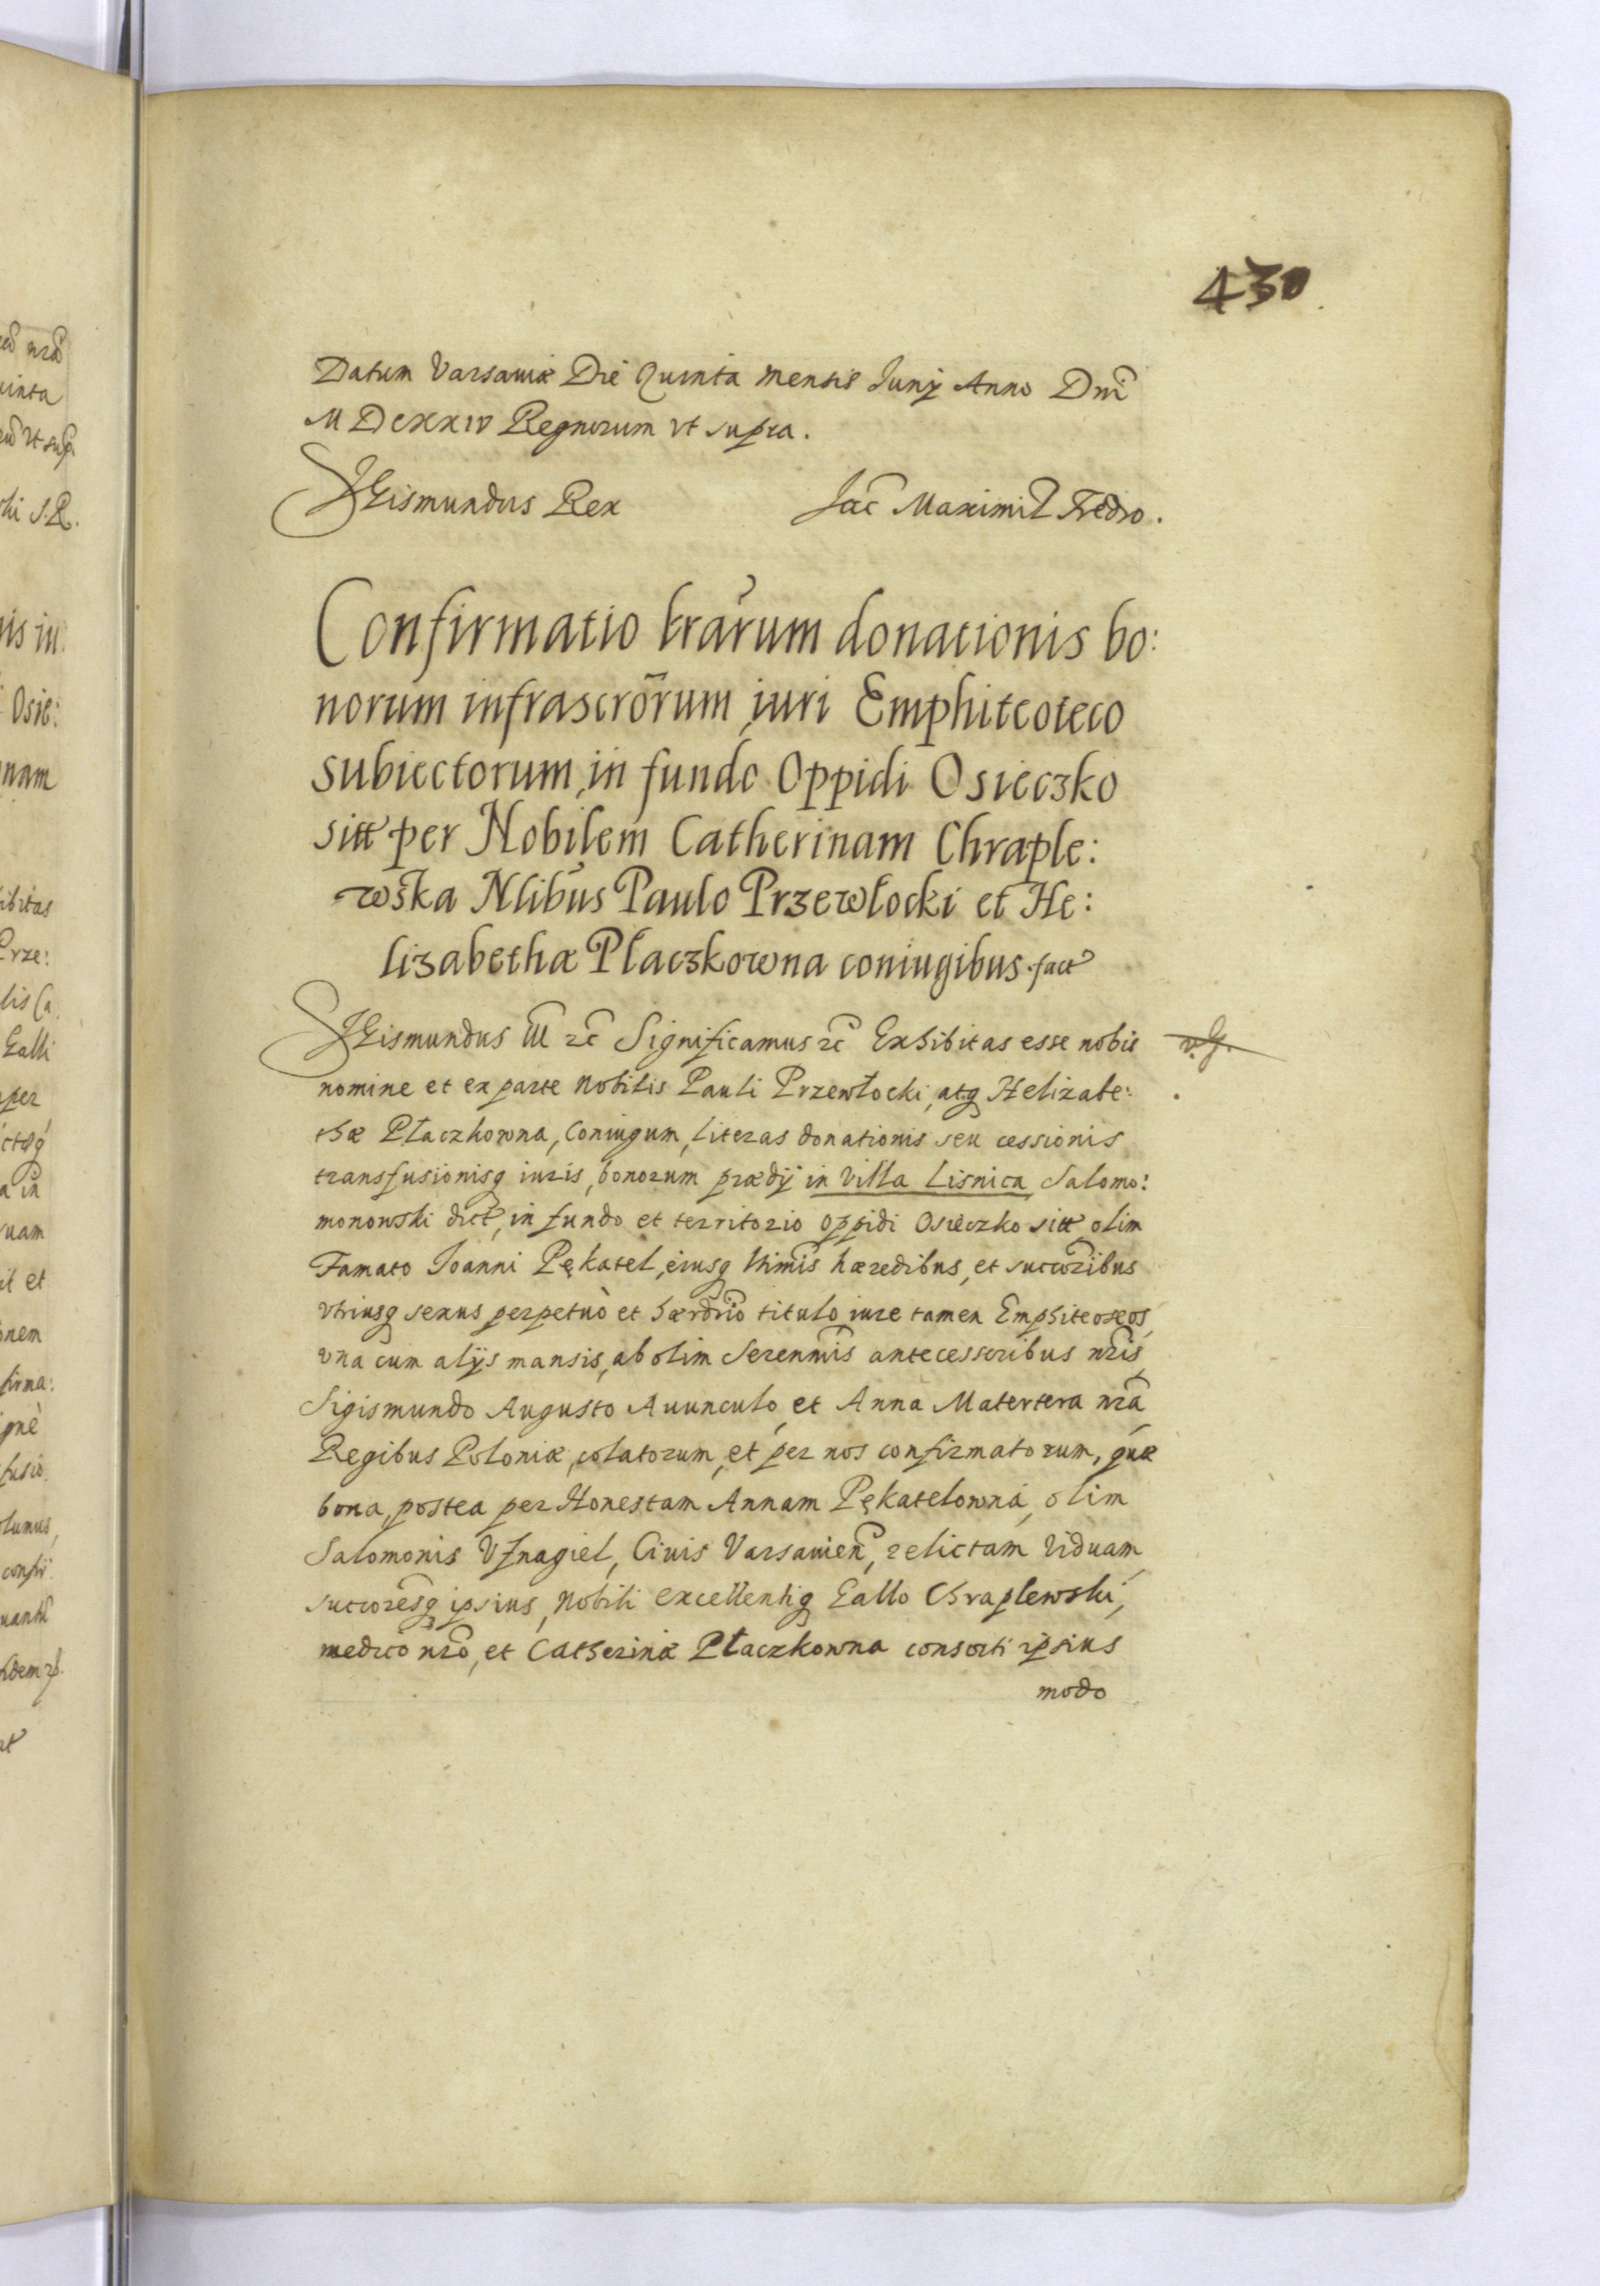 430
Datum Varsaviæ Die Quinta mensis Iunij Anno Dni
M DCXXIV Regnorum vt supra.
SIGismundus Rex Iac Maximil Fredro.
Confirmatio lrarum donationis bo:
norum infrascrorum iuri Emphiteoteco
subiectorum, in fundo Oppidi Osieczko
sitt per Nobilem Catherinam Chraple:
wska Nlibus Paulo Przewłocki et He:
lizabethæ Płaczkowna coniugibus fact
SIGismundus III rc Significamus rc Exhibitas esse nobis
nomine et ex parte Nobilis Pauli Przewłocki, atq Helizabe:
thæ Płaczkowna, Coniugum, literas donationis seu cessionis
transfusionisq iuris, bonorum prædij in Villa Lisnica Salomo:
monowski dict, in fundo et territorio oppidi Osieczko sitt olim
Famato Ioanni Pękatel, eiusq ltimis hæredibus, et succoribus
vtriusq sexus perpetuò et hærdrio titulo iure tamen Emphiteoseos,
vna cum alijs mansis, ab olim Serenmis antecessoribus nris
Sigismundo Augusto Auunculo, et Anna Matertera nra,
Regibus Poloniæ, colatorum, et per nos confirmatorum, quæ
bona, postea per Honestam Annam Pękatelowna, olim
Salomonis Vznagiel, Ciuis Varsauien, relictam Viduam,
succoresq ipsius, Nobili excellentiq Gallo Chraplewski,
medico nro, et Catherinæ Płaczkowna consorti ipsius
modo